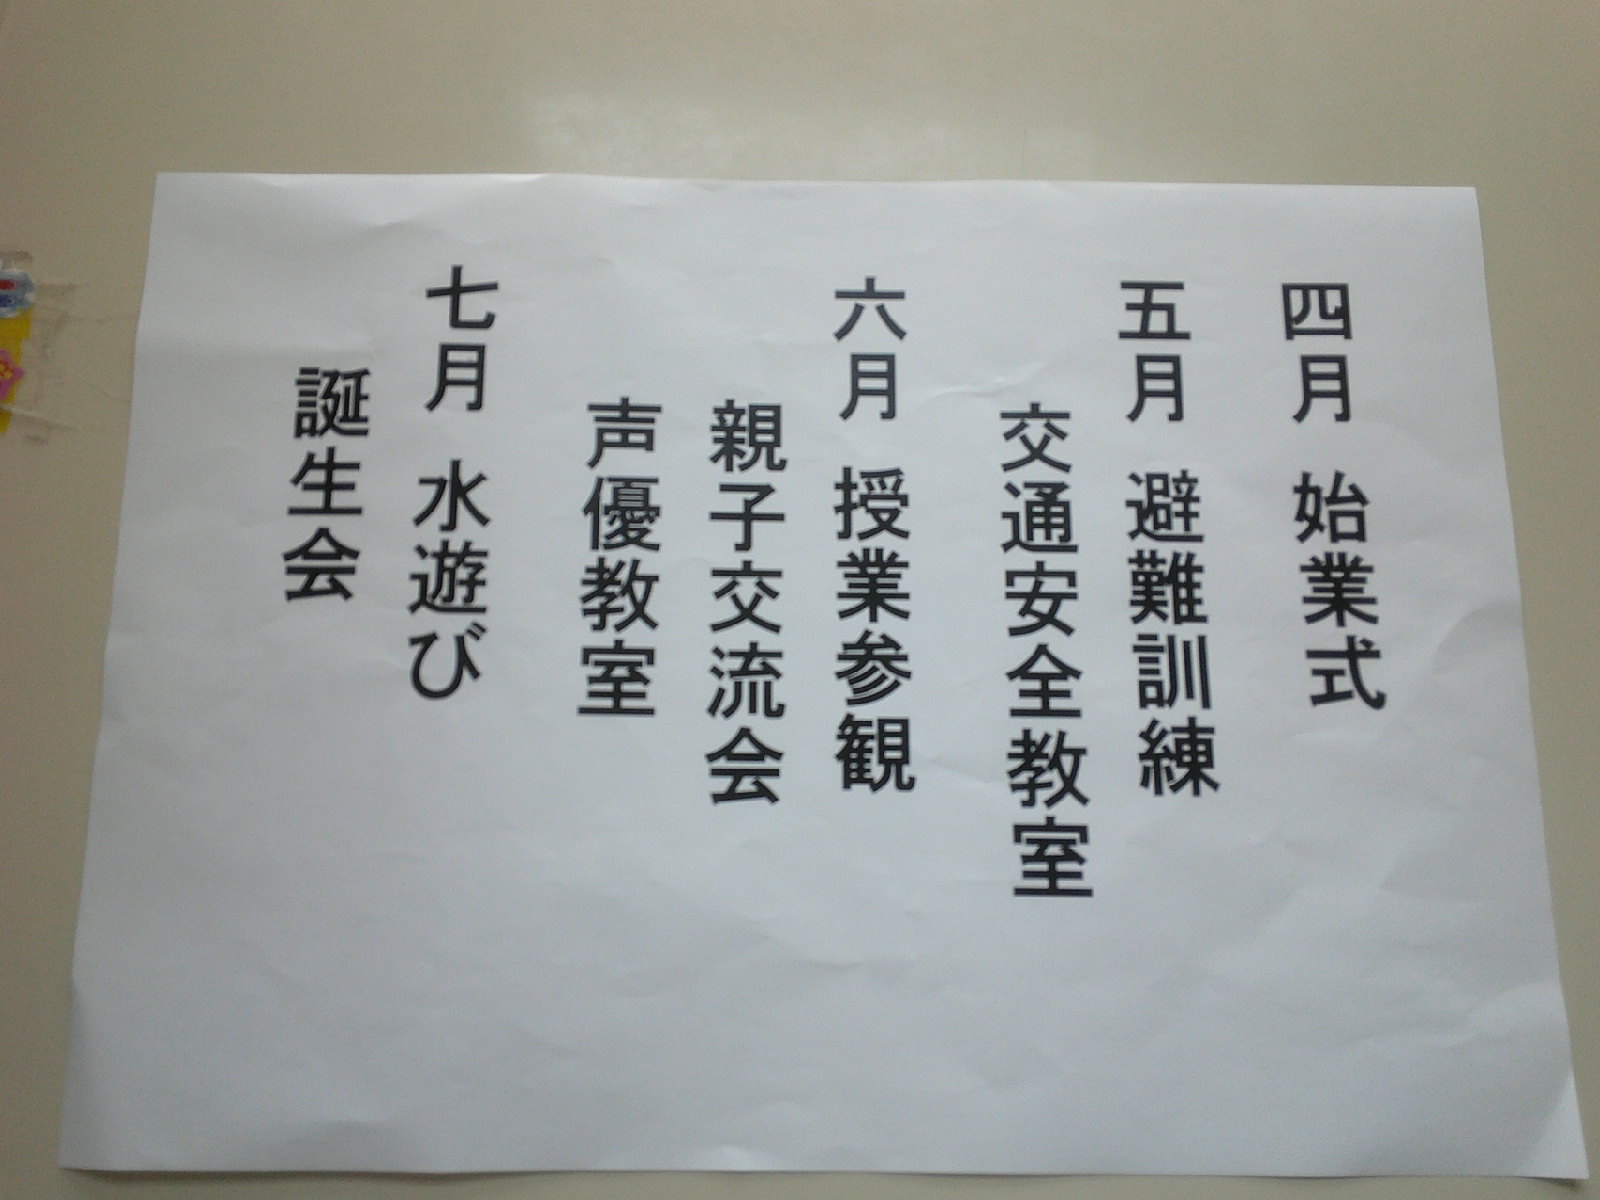 四月 始業式
五月 避難訓練
交通安全教室
六月 授業参観
親子交流会
声優教室
七月 水遊び
誕生会